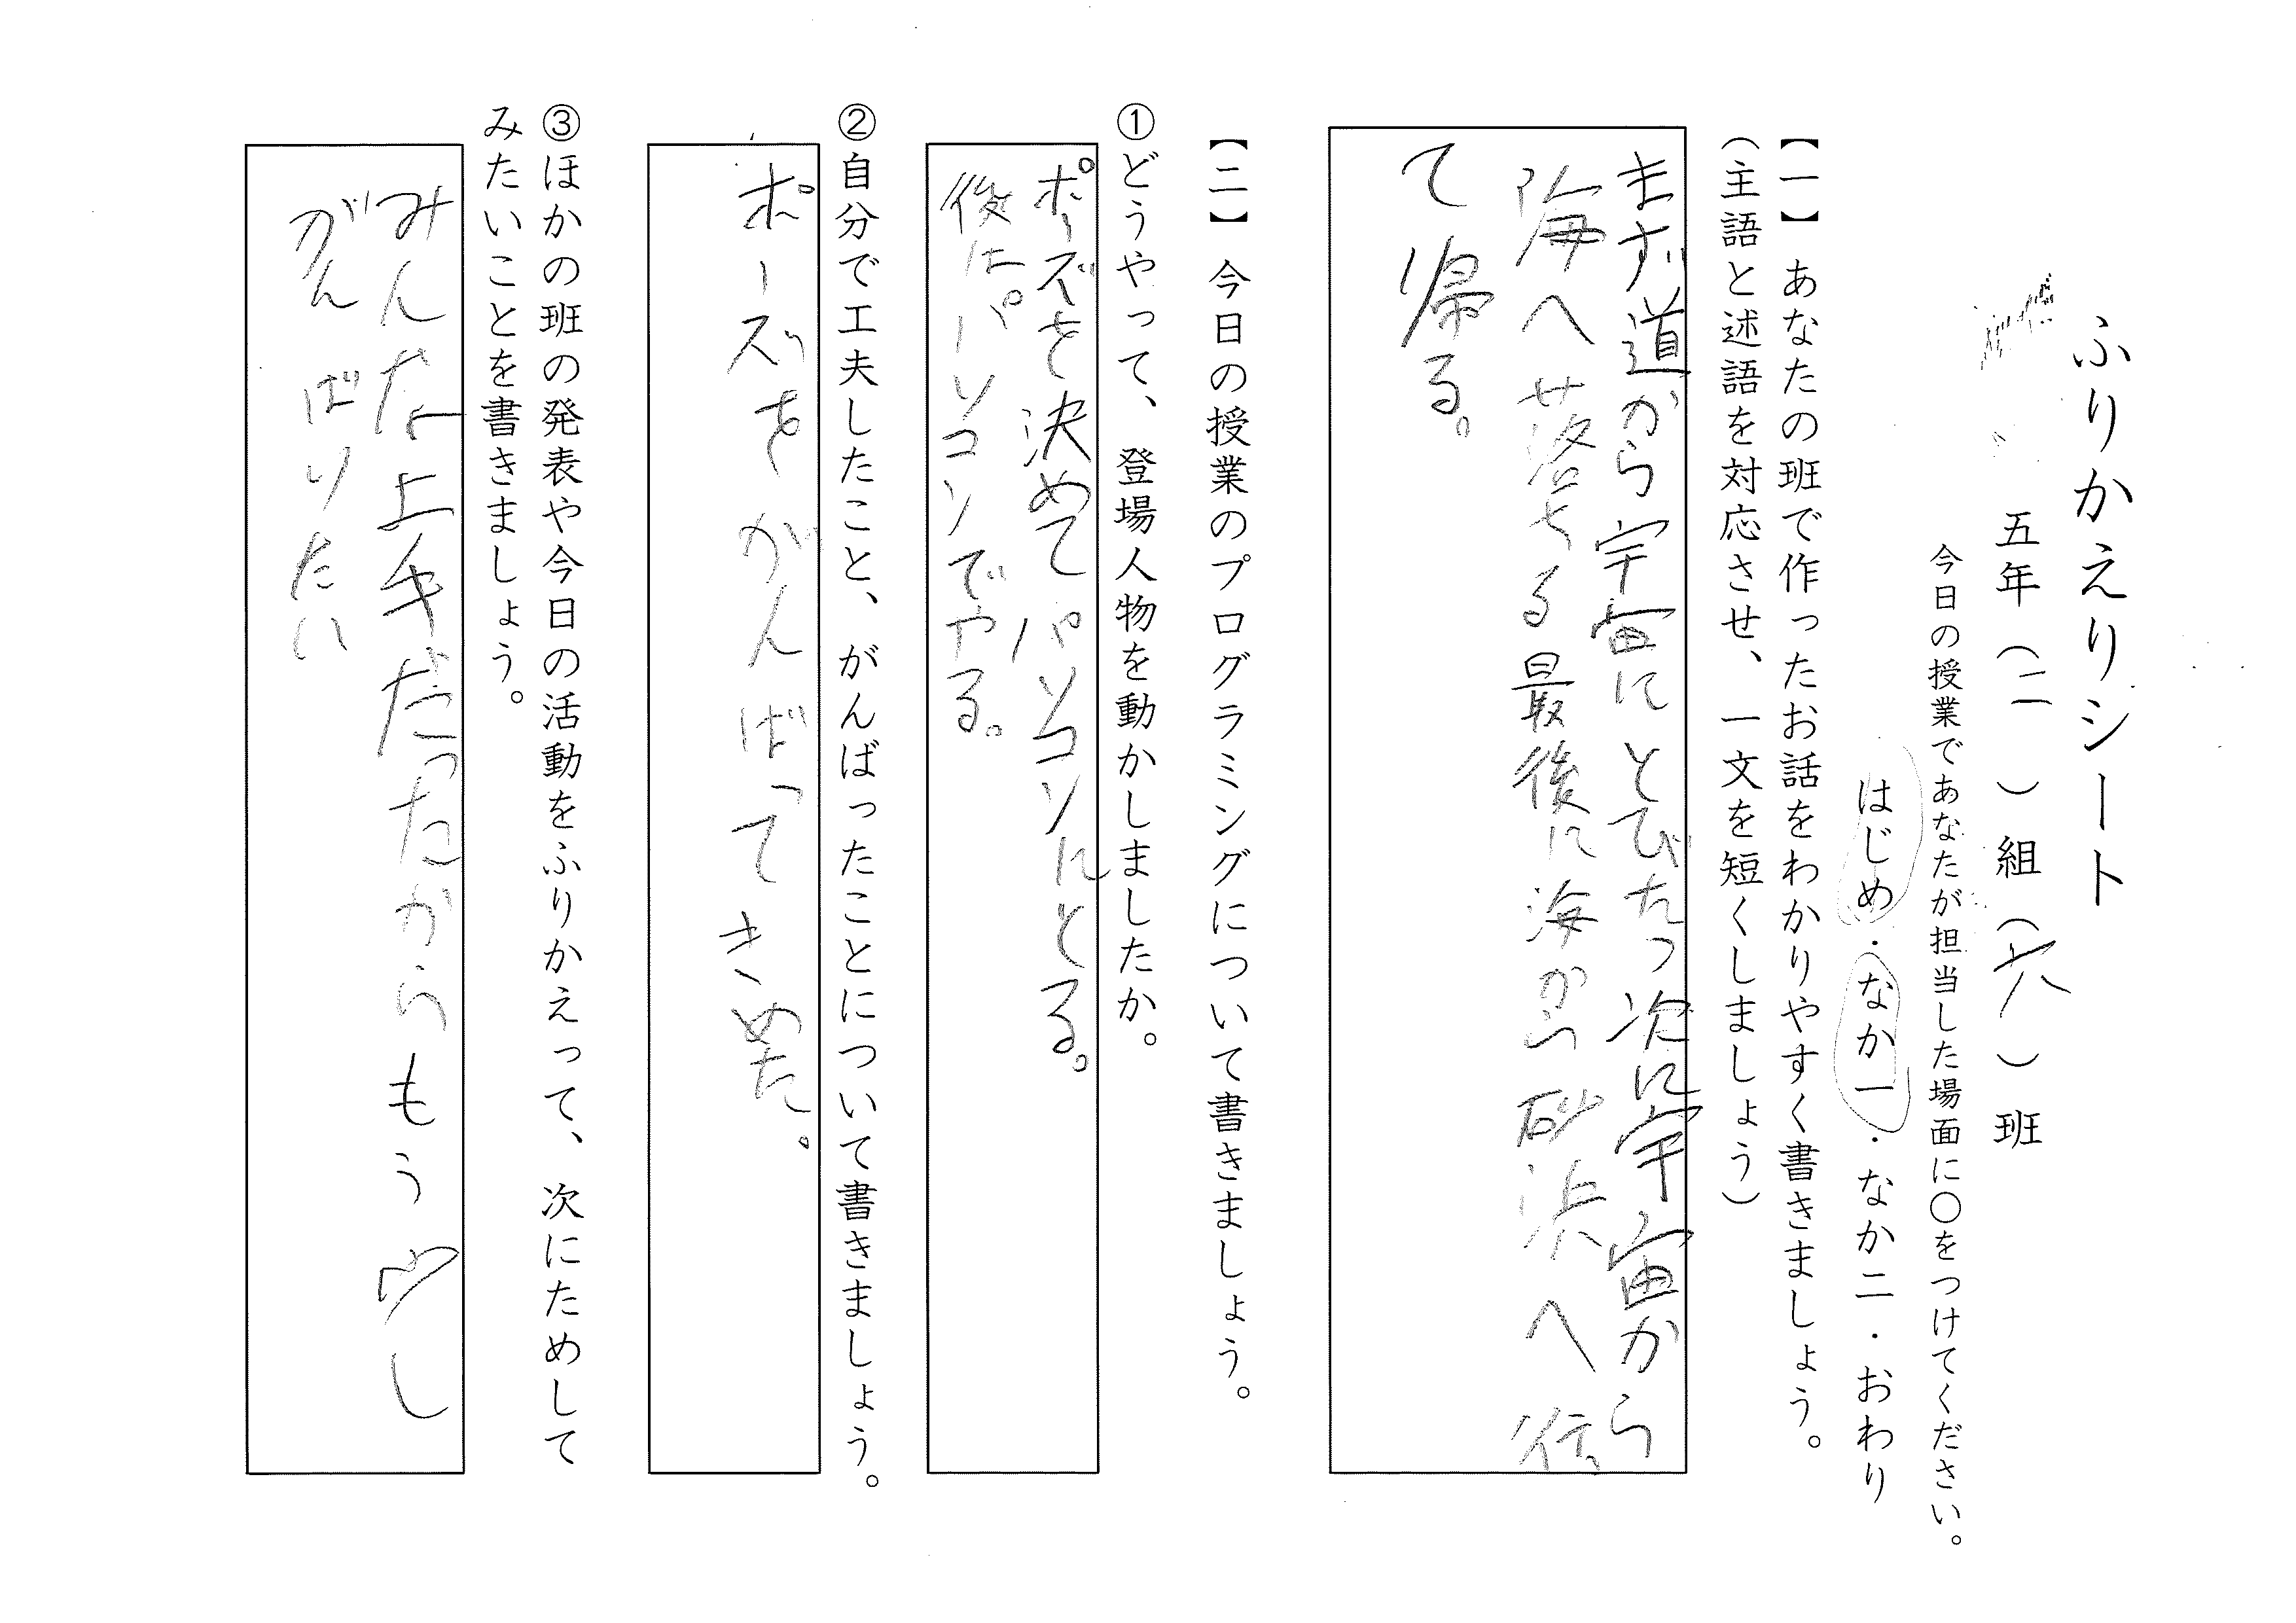 ふりかえりシート
五年（二）組（六）班
今日の授業であなたが担当した場面に○をつけてください。
はじめ・なか一・なか二・おわり
【一】あなたの班で作ったお話をわかりやすく書きましょう。
（主語と述語を対応させ、一文を短くしましょう）
まず道から宇宙にとびたつ次に宇宙から
海へ落ちる最後に海から砂浜へ行っ
て帰る。
【二】今日の授業のプログラミングについて書きましょう。
①どうやって、登場人物を動かしましたか。
ポーズを決めてパソコンにとる。
後はパーソコンでやる。
②自分で工夫したこと、がんばったことについて書きましょう。
ポーズをがんばってきめた。
③ほかの班の発表や今日の活動をふりかえって、次にためして
みたいことを書きましょう。
みんな上手だったからもう少し
がんばりたい